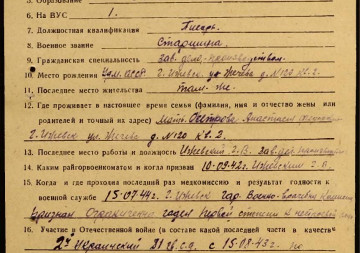 5. Образование
6. На ВУС 1.
7. Должностная квалификация Писарь
8. Военное звание Старшина
9. Гражданская специальность зав. делопроизводством.
10. Место рождения г. Ижевск д. №120 кв. 2.
11. Последнее место жительства там-же.
12. Где проживает в настоящее время семья (фамилия, имя и отчество жены или
родителей и точный на адрес) Мать Анастасия
г. Ижевск ул. д. №120 кв. 2.
13. Последнее место работы и должность Ижевский зав.
14. Каким райгорвоенкоматом и когда призван 10.03.42г. Ижевским Г.В.
15. Когда и где проходил последний раз медкомиссию и результат годности к
военной службе 15.07.44г. г. Ижевск гар. Военно-врачебн.
Признан Ограниченно годен Первой степени
16. Участие в Отечественной войне (в составе какой последней части в качестве
2й Украинский 21 с 15.08.43г. по